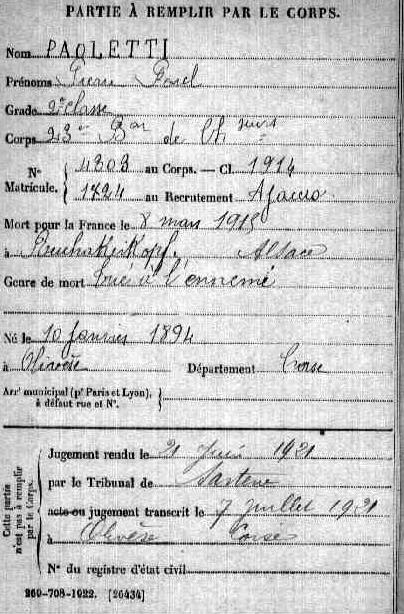 PARTIE À REMPLIR PAR LE CORPS.
Nom PAOLETTI
Prénoms Pierre
Grade 2e classe
Corps 23e Bon de Chseurs
N° Matricule. 4303 au Corps. — Cl. 1914
1724 au Recrutement Ajaccio
Mort pour la France le 8 mars 1915
à Reichakerkopf. Alsace
Genre de mort Tué à l'ennemi
Né le 10 janvier 1894
à Olivèse Département Corse
Arrt municipal (pr Paris et Lyon), à défaut rue et N°.
Cette partie n'est pas à remplir par le Corps.
Jugement rendu le 21 Juin 1921
par le Tribunal de Sartène
acte ou jugement transcrit le 7 juillet 1921
à Olivèse Corse
N° du registre d'état civil
260-708-1922. [26434]